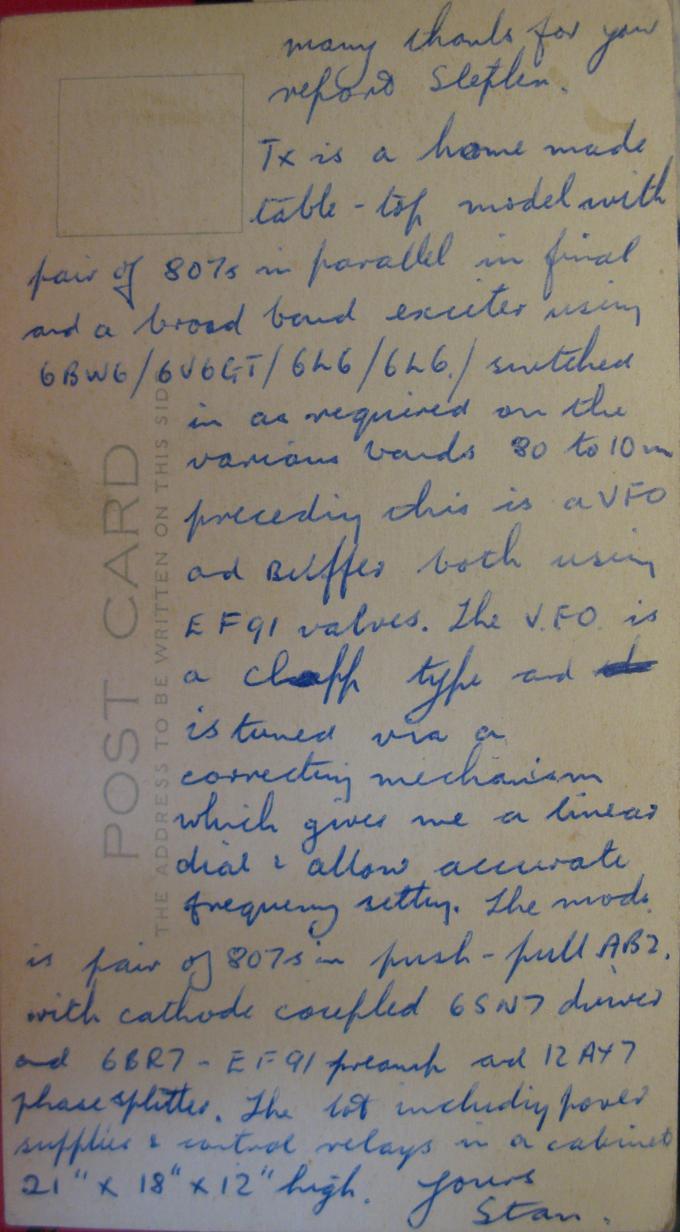 many thanks for your
report Stephen.
Tx is a home made
table-top model with
pair of 807s in parallel in final
and a broad band exciter using
6BW6/6V6GT/6L6/6L6./ switched
in as required on the
various bands 80 to 10m
preceding this is a VFO
and Buffer both using
EF91 valves. The V.F.O. is
a clapp type and
is tuned via a
correcting mechanism
which gives me a linear
dial & allow accurate
frequency setting. The mod.
is pair of 807s in push-pull AB2.
with cathode coupled 6SN7 driver
and 6BR7 - EF91 preamp and 12AY7
phase splitter. The lot including power
supplies & control relays in a cabinet
21" x 18" x 12" high. Yours
Stan.
POST CARD
THE ADDRESS TO BE WRITTEN ON THIS SID